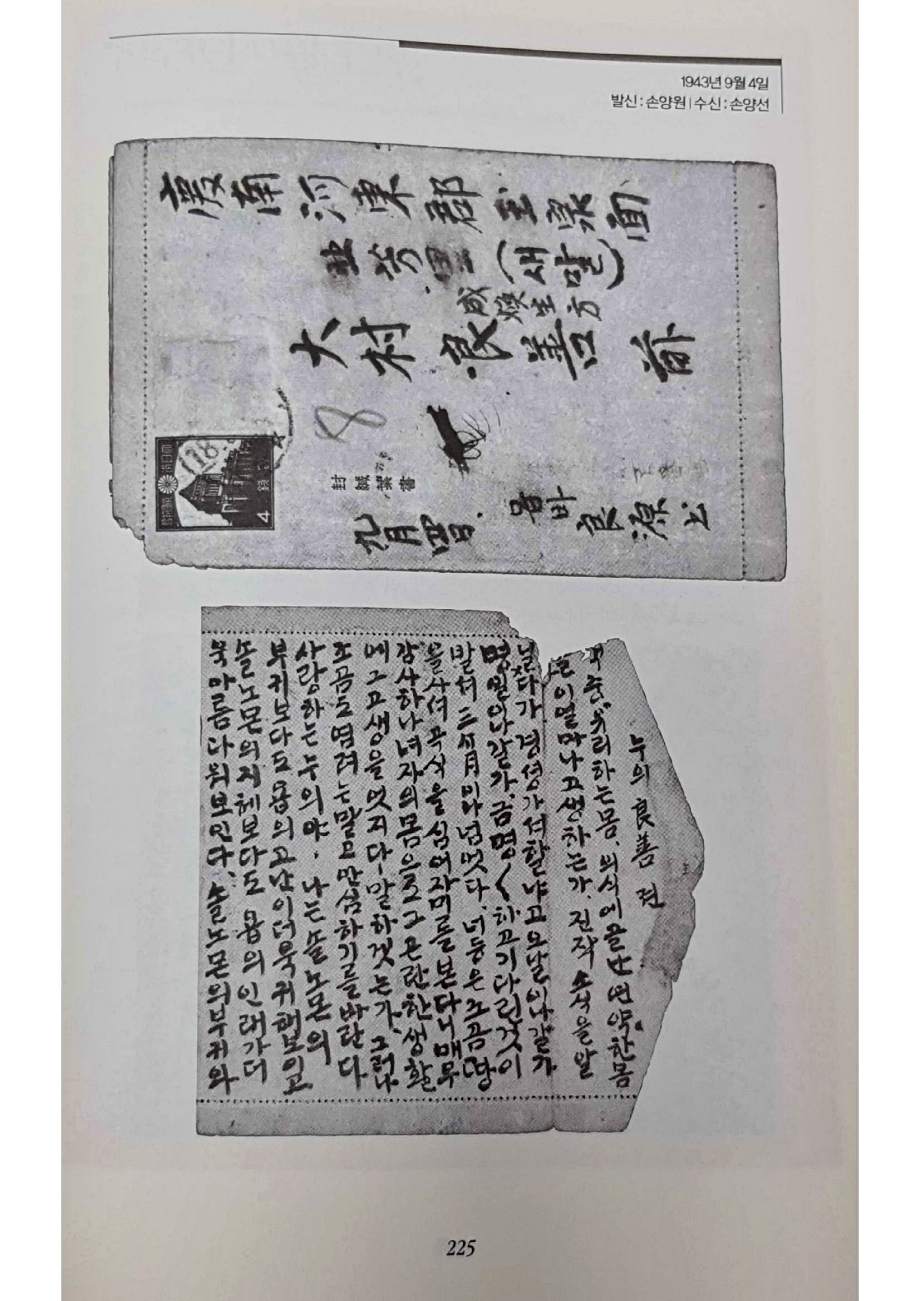 1943년 9월 4일
발신 : 손양원 | 수신 : 손양선
慶南 河東郡 玉泉面
北芳里 (새말)
成煥生方
大村 良善
8
4
錢
封緘葉書
九月四日.
옵바 良源 上
누의 良善 전
하는 몸, 의식에 연약한 몸
은 이 얼마나 고생하는가, 진작 소식을 알
닐다가 경성 가서 할냐고 오날이나 갈가
명일이나 갈가, 금명 〱 하고 기다린 것이
발서 三개月이나 넘엇다, 너등은 조금 땅
을 사셔 곡식을 심어 자미를 본다니 매무
감사하나 녀자의 몸으로 그 곤란한 생활
에 그 고생을 엇지 다 - 말하겟는가, 그러나
조곰도 염려는 말고 안심하기를 바란다
사랑하는 누의야, 나는 솔노몬의
부귀보다도 욥의 고난이 더욱 귀해 보이고
솔노몬의 지혜보다도 욥의 인내가 더
욱 아름다워 보인다, 솔노몬의 부귀와
225